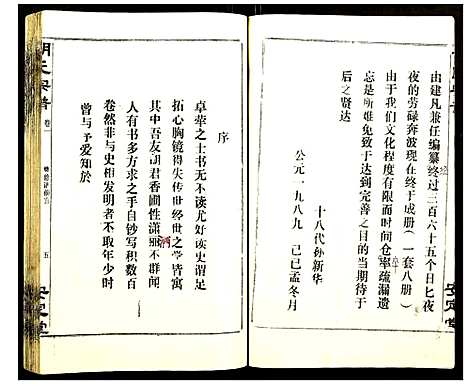 由建凡兼任编纂终过三百六十五个日匕夜
夜的劳碌奔波现在终于成册(一套八册)
由于我们文化程度有限而时间仓率疏漏遗
忘是所难免致于达到完善之目的当期待于
后之贤达
十八代孙新华
公元一九八九 己巳孟冬月
安定堂
序
卓荦之士书无不读尤好读史谓足
拓心胸镜得失传世经世之学皆寓
其中吾友胡君香圃性潇洒不群闻
人有书多方求之手自钞写积数百
卷然非与史相发明者不取年少时
曾与予爱知於
胡氏宗谱
卷一
五
安定堂